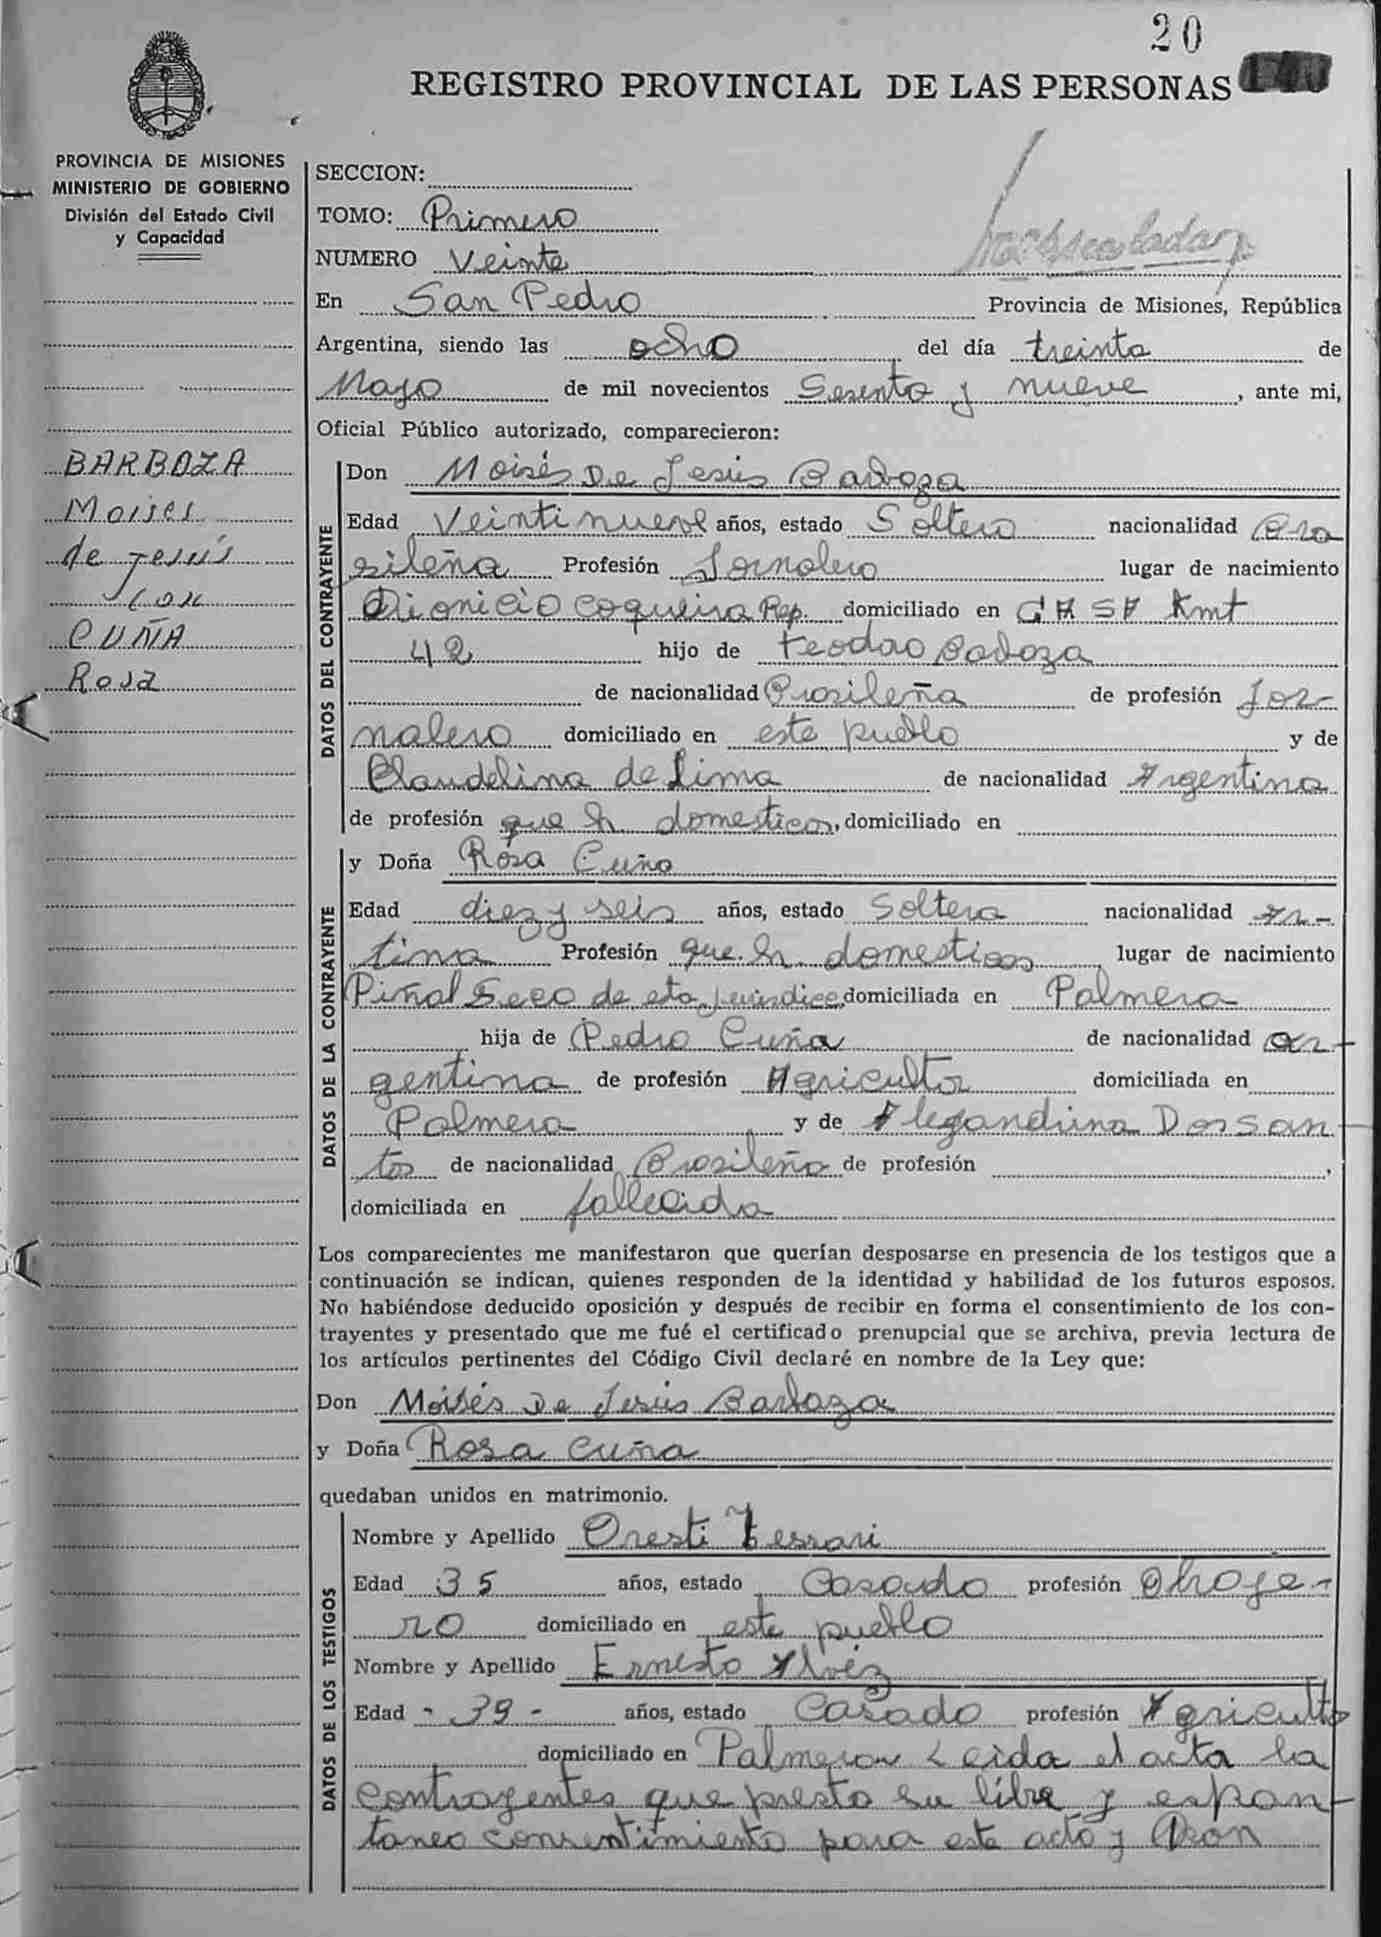 20
REGISTRO PROVINCIAL DE LAS PERSONAS
PROVINCIA DE MISIONES
MINISTERIO DE GOBIERNO
División del Estado Civil
y Capacidad
BARBOZA
Moises
de Jesús
con
CUÑA
Rosa
SECCION:
TOMO: Primero
NUMERO Veinte
En San Pedro Provincia de Misiones, República
Argentina, siendo las ocho del día treinta de
Mayo de mil novecientos Sesenta y nueve, ante mi,
Oficial Público autorizado, comparecieron:
DATOS DEL CONTRAYENTE
Don Moisés De Jesús Barboza
Edad Veintinueve años, estado Soltero nacionalidad Bra
sileña Profesión Jornalero lugar de nacimiento
Dionicio Coqueira Rep. domiciliado en Kmt
42 hijo de Teodoro Barboza
de nacionalidad Brasileña de profesión Jor-
nalero domiciliado en este pueblo y de
Claudelina de Lima de nacionalidad Argentina
de profesión que h. domesticos, domiciliado en
DATOS DE LA CONTRAYENTE
y Doña Rosa Cuña
Edad diez y seis años, estado Soltera nacionalidad ar-
tina Profesión que. h. domesticos lugar de nacimiento
Piñal Seco de esta jurisdicc, domiciliada en Palmera
hija de Pedro Cuña de nacionalidad ar-
gentina de profesión Agricultor domiciliada en
Palmera y de Alegandrina Dos San
tos de nacionalidad Brasileña de profesión ,
domiciliada en fallecida
Los comparecientes me manifestaron que querían desposarse en presencia de los testigos que a
continuación se indican, quienes responden de la identidad y habilidad de los futuros esposos.
No habiéndose deducido oposición y después de recibir en forma el consentimiento de los con-
trayentes y presentado que me fué el certificado prenupcial que se archiva, previa lectura de
los artículos pertinentes del Código Civil declaré en nombre de la Ley que:
Don Moisés De Jesús Barboza
y Doña Rosa Cuña
quedaban unidos en matrimonio.
DATOS DE LOS TESTIGOS
Nombre y Apellido Oresti Tessari
Edad 35 años, estado Casado profesión
ro domiciliado en este pueblo
Nombre y Apellido Ernesto Alvez
Edad - 39 - años, estado Casado profesión Agriculto
domiciliado en Palmera Leida el acta la
contrayentes que presto su libre y espon-
taneo consentimiento para este acto y